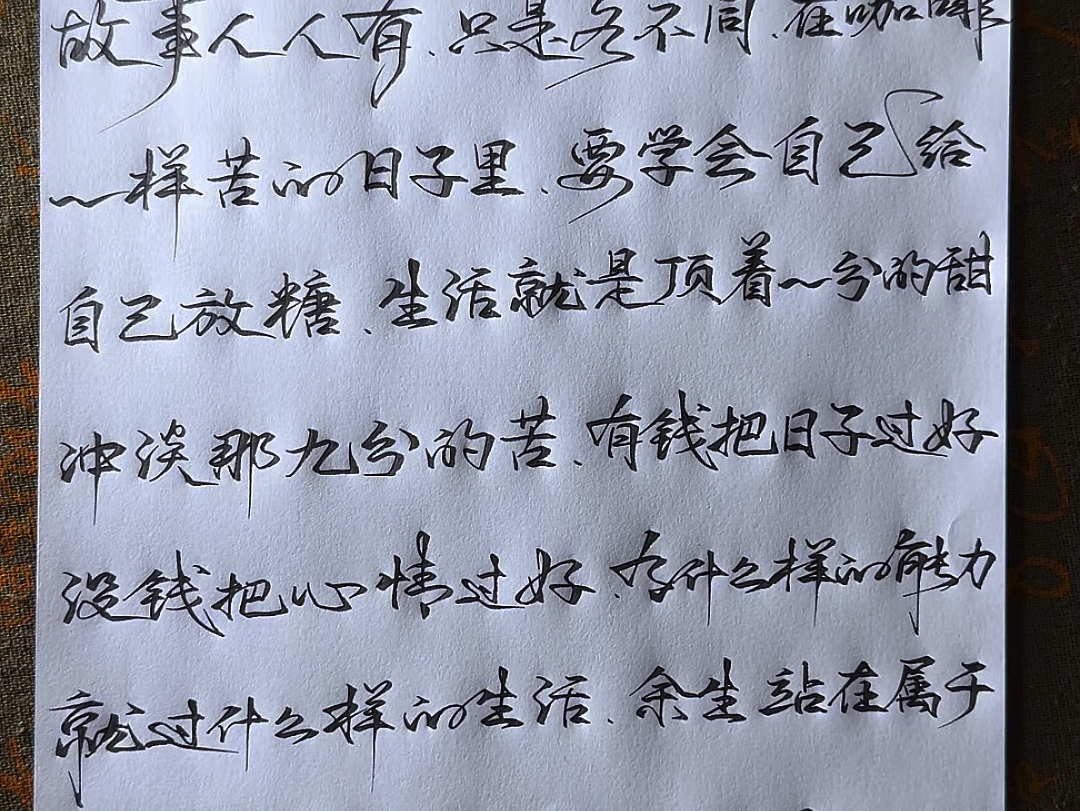 故事人人有、只是各不同、在咖啡
一样苦的日子里、要学会自己给
自己放糖、生活就是顶着一分的甜
冲淡那九分的苦、有钱把日子过好
没钱把心情过好、有什么样的能力
就过什么样的生活、余生站在属于